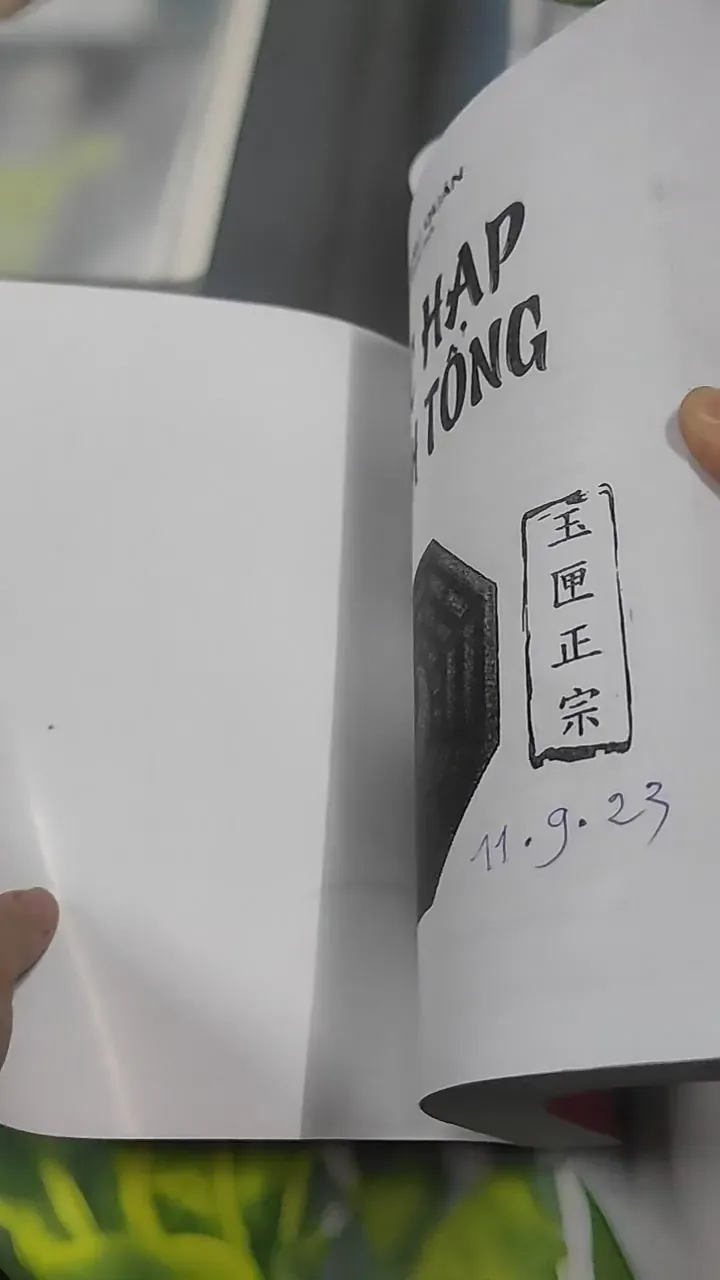 HẠP
TÔNG
玉
匣
正
宗
11.9.23